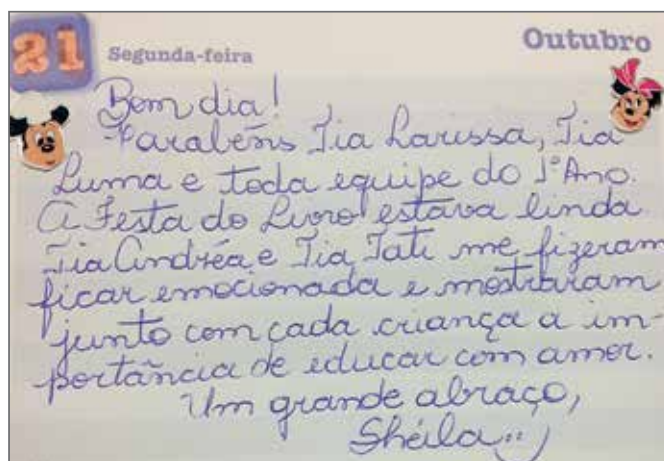 21 Segunda-feira Outubro
Bom dia!
Parabéns Tia Larissa, Tia
Luma e toda equipe do 1º Ano.
A Festa do Livro estava linda.
Tia Andréa e Tia Tati me fizeram
ficar emocionada e mostraram
junto com cada criança a im-
portância de educar com amor.
Um grande abraço,
Sheila :)